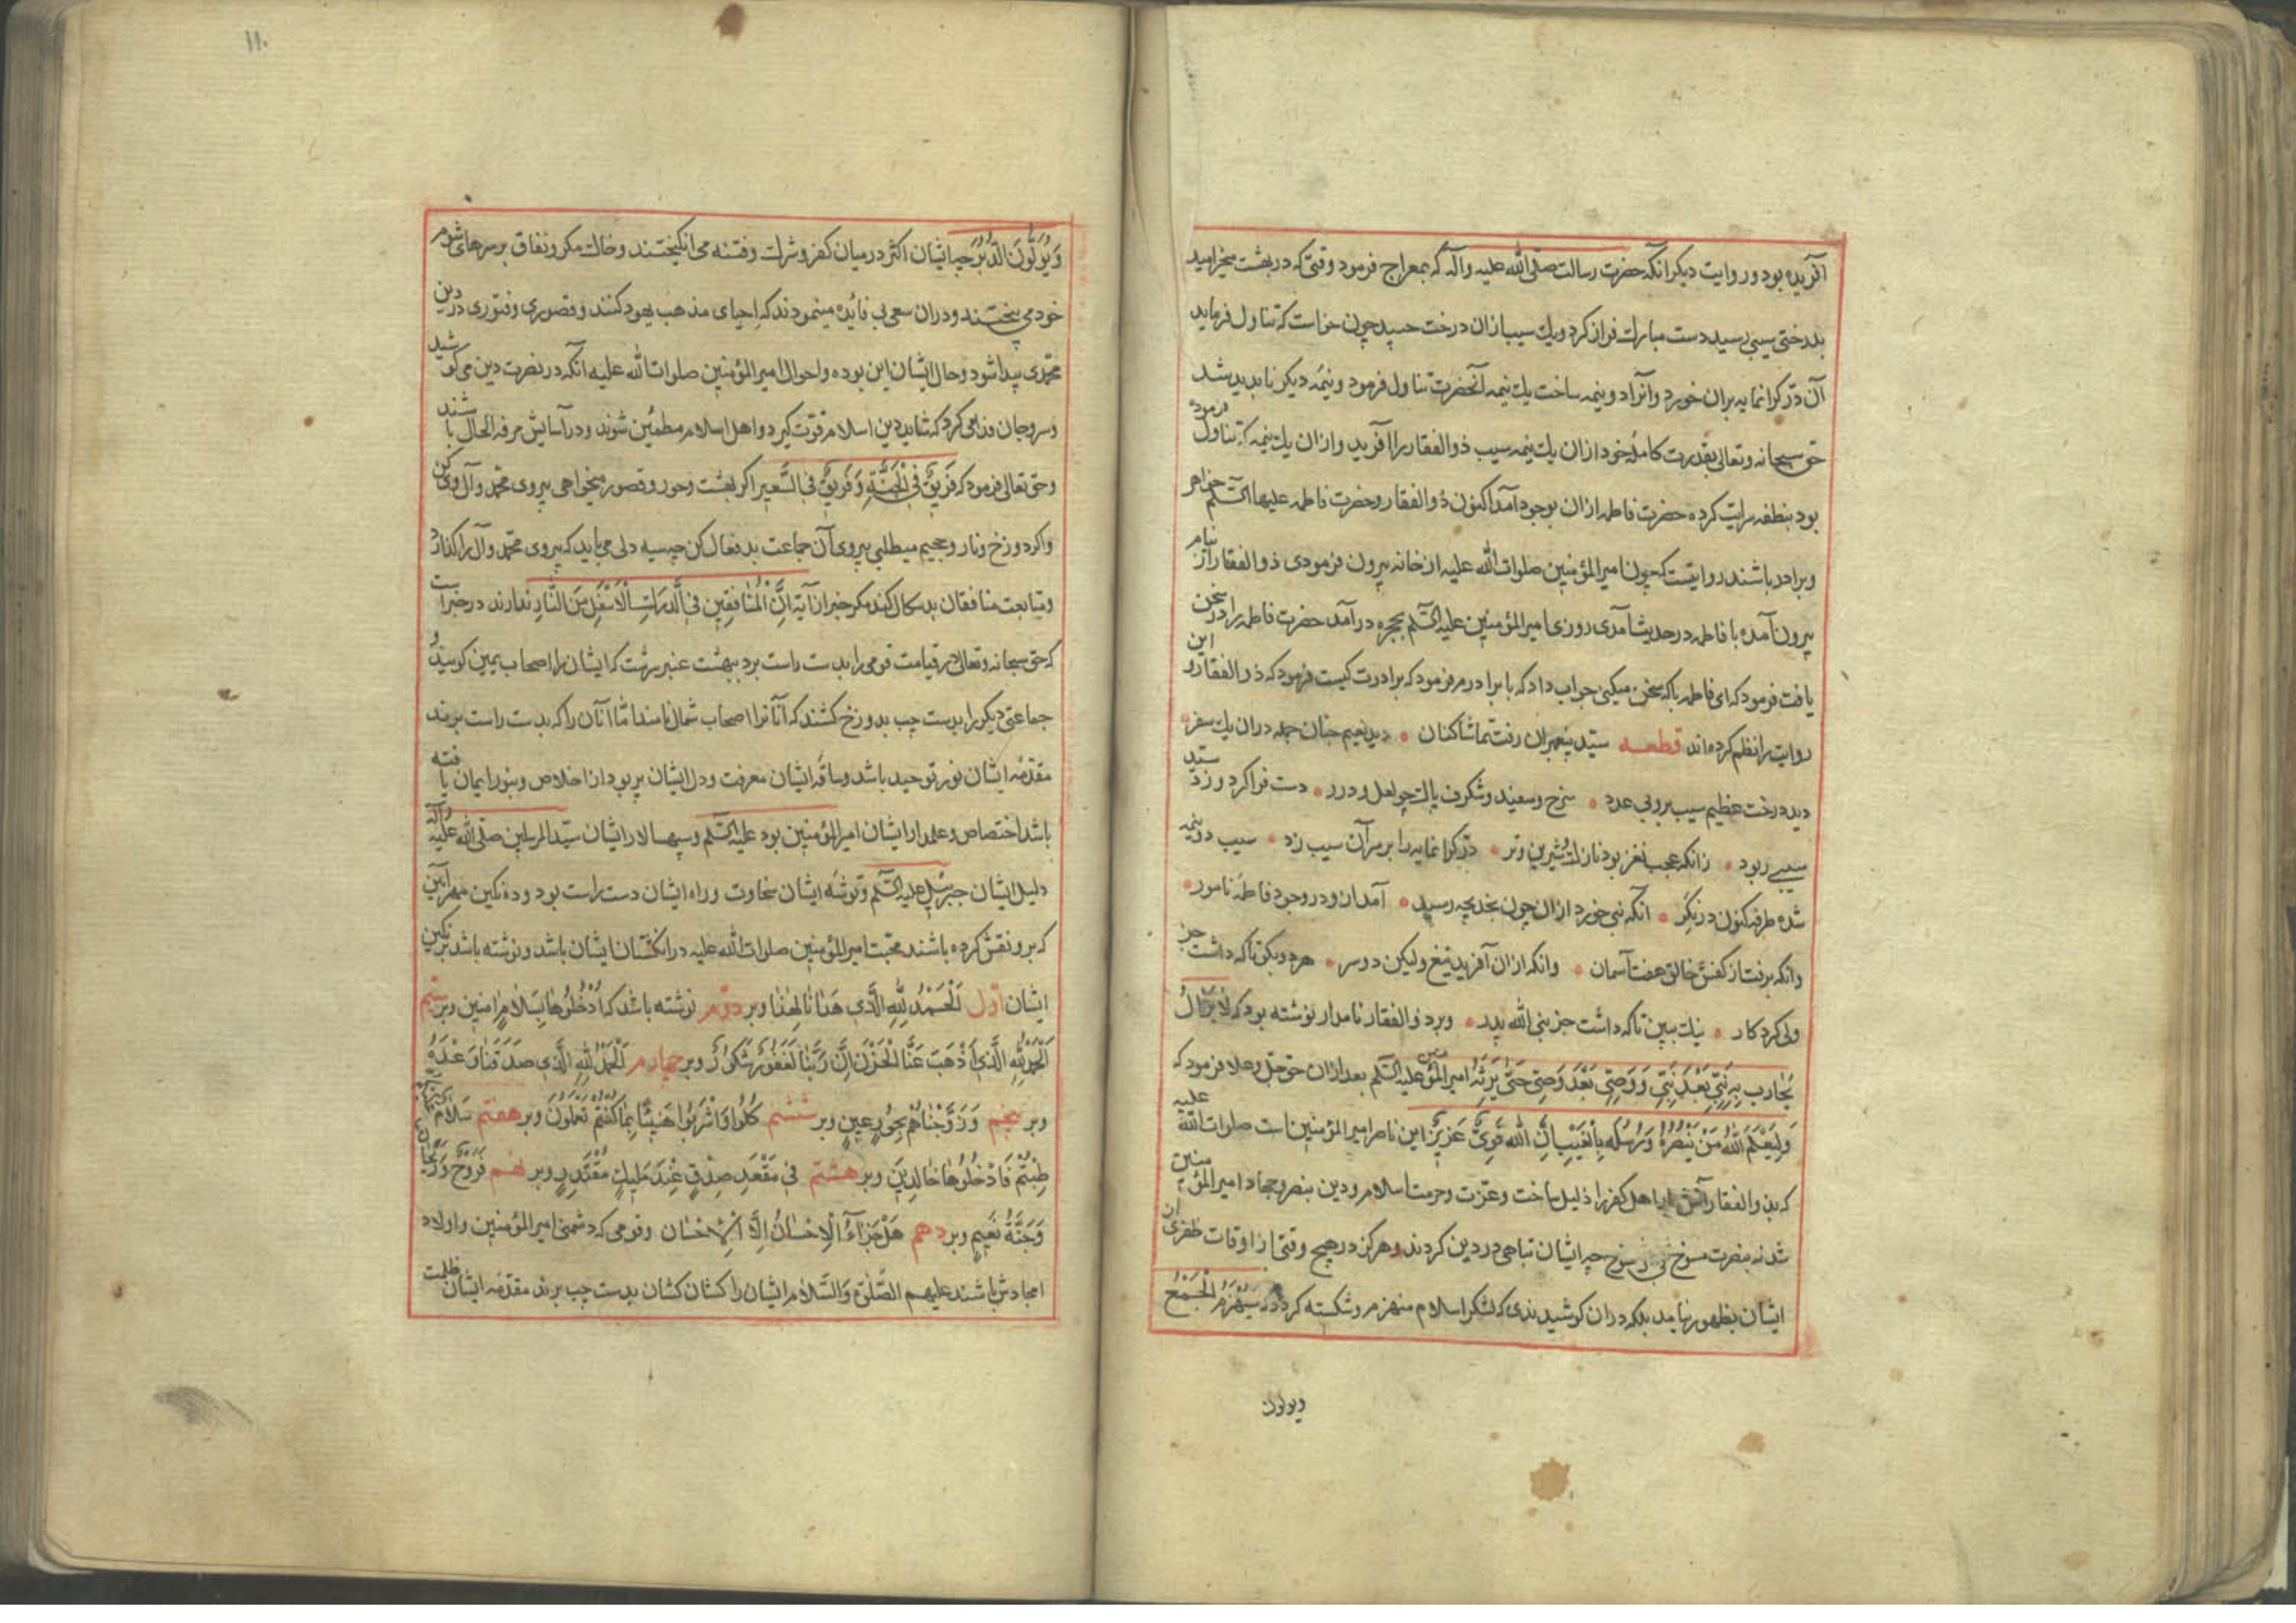 آفریده بود و روایت دیکر انکه حضرت رسالت صلی الله علیه وآله که بمعراج فرمود وقتی که در بهشت میخرامید
بدرختی سیبی رسید دست مبارك فراز کرد و یك سیب ازان درخت چون خواست که تناول فرماید
آن درّ کرانمایه بران خورد و انرا دو نیمه ساخت یك نیمه آنحضرت تناول فرمود و نیمهٔ دیکر ناپدید شد
حق سبحانه وتعالی بقدرت کاملهٔ خود ازان یك نیمه سیب ذوالفقار را آفرید و ازان یك نیمه که تناول فرموده
بود بنطفه سرایت کرده حضرت فاطمه ازان بوجود آمد اکنون ذوالفقار و حضرت فاطمه علیها السّلم خواهر
و برادر باشند روایتست که چون امیرالمؤمنین صلوات الله علیه از خانه بیرون فرمودی ذوالفقار از نیام
بیرون آمده با فاطمه در حدیث آمدی روزی امیرالمؤمنین علیه السّلم بحجره درآمد حضرت فاطمه را در سخن
یافت فرمود که ای فاطمه با که سخن میکنی جواب داد که با برادرم فرمود که برادرت کیست فرمود که ذوالفقار و این
روایت را نظم کرده‌اند قطعه سیّد پیغمبران رفت تماشاکنان • دید نعیم جنان جمله دران یك سفر •
دید درخت عظیم سیب برو بی عدد • سرخ و سفید و شکرف پاك چو لعل و درر • دست فرا کرد و زد سیّد
سیبی ربود • زانکه عجب نغز بود نازك و شیرین و تر • درّ کرانمایه را بر سر آن سیب زد • سیب دو نیمه
شده طرفه کنون در نکر • انکه نبی خورد ازان چون بخدیجه رسید • آمد ازو در وجود فاطمهٔ نامور •
وانکه برفت از کفش خالق هفت آسمان • وانکه ازان آفرید تیغ ولیکن دو سر • هر دو یکی تا که داشت جز
ولی کردکار • نیك ببین تا که داشت جز بنی الله پدر • و بر ذوالفقار نامدار نوشته بود که لایزال
یُحارب به نبیّ بعد نبیّ و وصیّ بعد وصیّ حتی یرثه امیرالمؤمنین علیه السّلم بعد ازان حق جل وعلا فرمود که
ولیعلم الله من ینصره ورسله بالغیب ان الله قویّ عزیز این ناصر امیرالمؤمنین است صلوات الله علیه
که بذوالفقار اهل کفر را ذلیل ساخت و عزّت و حرمت اسلام و دین بنصر و جهاد امیرالمؤمنین
شد نه بنصرت چه ایشان تباهی در دین کردند و هرکز در هیچ وقتی از اوقات ظفری از
ایشان بظهور نیامد بلکه دران کوشیدندی که لشکر اسلام منهزم و شکسته کردد که سیهزم الجمع
ویولون
۱۱۰
ویولّون الدّبر چه ایشان اکثر در میان کفر و شرك و فتنه می انکیختند و خاك مکر و نفاق بر سرهای شوم
خود می بیختند و دران سعی بی فائده مینمودند که احیای مذهب یهود کنند و قصوری و فتوری در دین
محمّدی پیدا شود و حال ایشان این بوده و احوال امیرالمؤمنین صلوات الله علیه آنکه در نصرت دین می کوشید
و سر و جان فدا می کرد که شاید دین اسلام قوت کیرد و اهل اسلام مطمئن شوند و در آسایش مرفه الحال باشند
و حق تعالی فرمود که فریق فی الجنّة وفریق فی السّعیر اکر بهشت و حور و قصور میخواهی پیروی محمّد و آل وی کن
و اکر دوزخ و نار و جحیم میطلبی پیروی آن جماعت بدفعال کن چه سیه دلی می باید که پیروی محمّد و آل را کذارد
و متابعت منافقان بدسکال کند مکر خبر از آیة انّ المنافقین فی الدّرك الاسفل من النّار ندارند در خبر است
که حق سبحانه وتعالی در قیامت قومی را بدست راست برد ببهشت عنبرسرشت که ایشان را اصحاب یمین کویند و
جماعتی دیکر را بدست چپ بدوزخ کشند که آنانرا اصحاب شمال نامند امّا آنان را که بدست راست برند
مقدّمهٔ ایشان نور توحید باشد و ساقهٔ ایشان معرفت و دل ایشان پر بود از اخلاص و بنور ایمان یافته
باشد اختصاص و علمدار ایشان امیرالمؤمنین بود علیه السّلم و سپهسالار ایشان سیّد المرسلین صلّی الله علیه وآله
دلیل ایشان جبرئیل علیه السّلم و توشهٔ ایشان سخاوت و راه ایشان دست راست بود و ده نکین مهر آیین
که برو نقش کرده باشند محبّت امیرالمؤمنین صلوات الله علیه در انکشتان ایشان باشد و نوشته باشد بر نکین
ایشان اوّل الحمد لله الّذی هدانا لهذا و بر دوّم نوشته باشد که ادخلوها بسلام امنین و بر سیّم
الحمد لله الّذی اذهب عنّا الحزن انّ ربّنا لغفور شکور و بر چهارم الحمد لله الّذی صدقنا وعده
و بر پنجم وزوّجناهم بحور عین و بر ششم کلوا واشربوا هنیئا بما کنتم تعملون و بر هفتم سلام علیکم
طبتم فادخلوها خالدین و بر هشتم فی مقعد صدق عند ملیك مقتدر و بر نهم فروح وریحان
وجنّة نعیم و بر دهم هل جزآء الاحسان الّا الاحسان و قومی که دشمن امیرالمؤمنین و اولاد
امجادش باشند علیهم الصّلوة والسّلام ایشان را کشان کشان بدست چپ برند مقدّمهٔ ایشان ظلمت